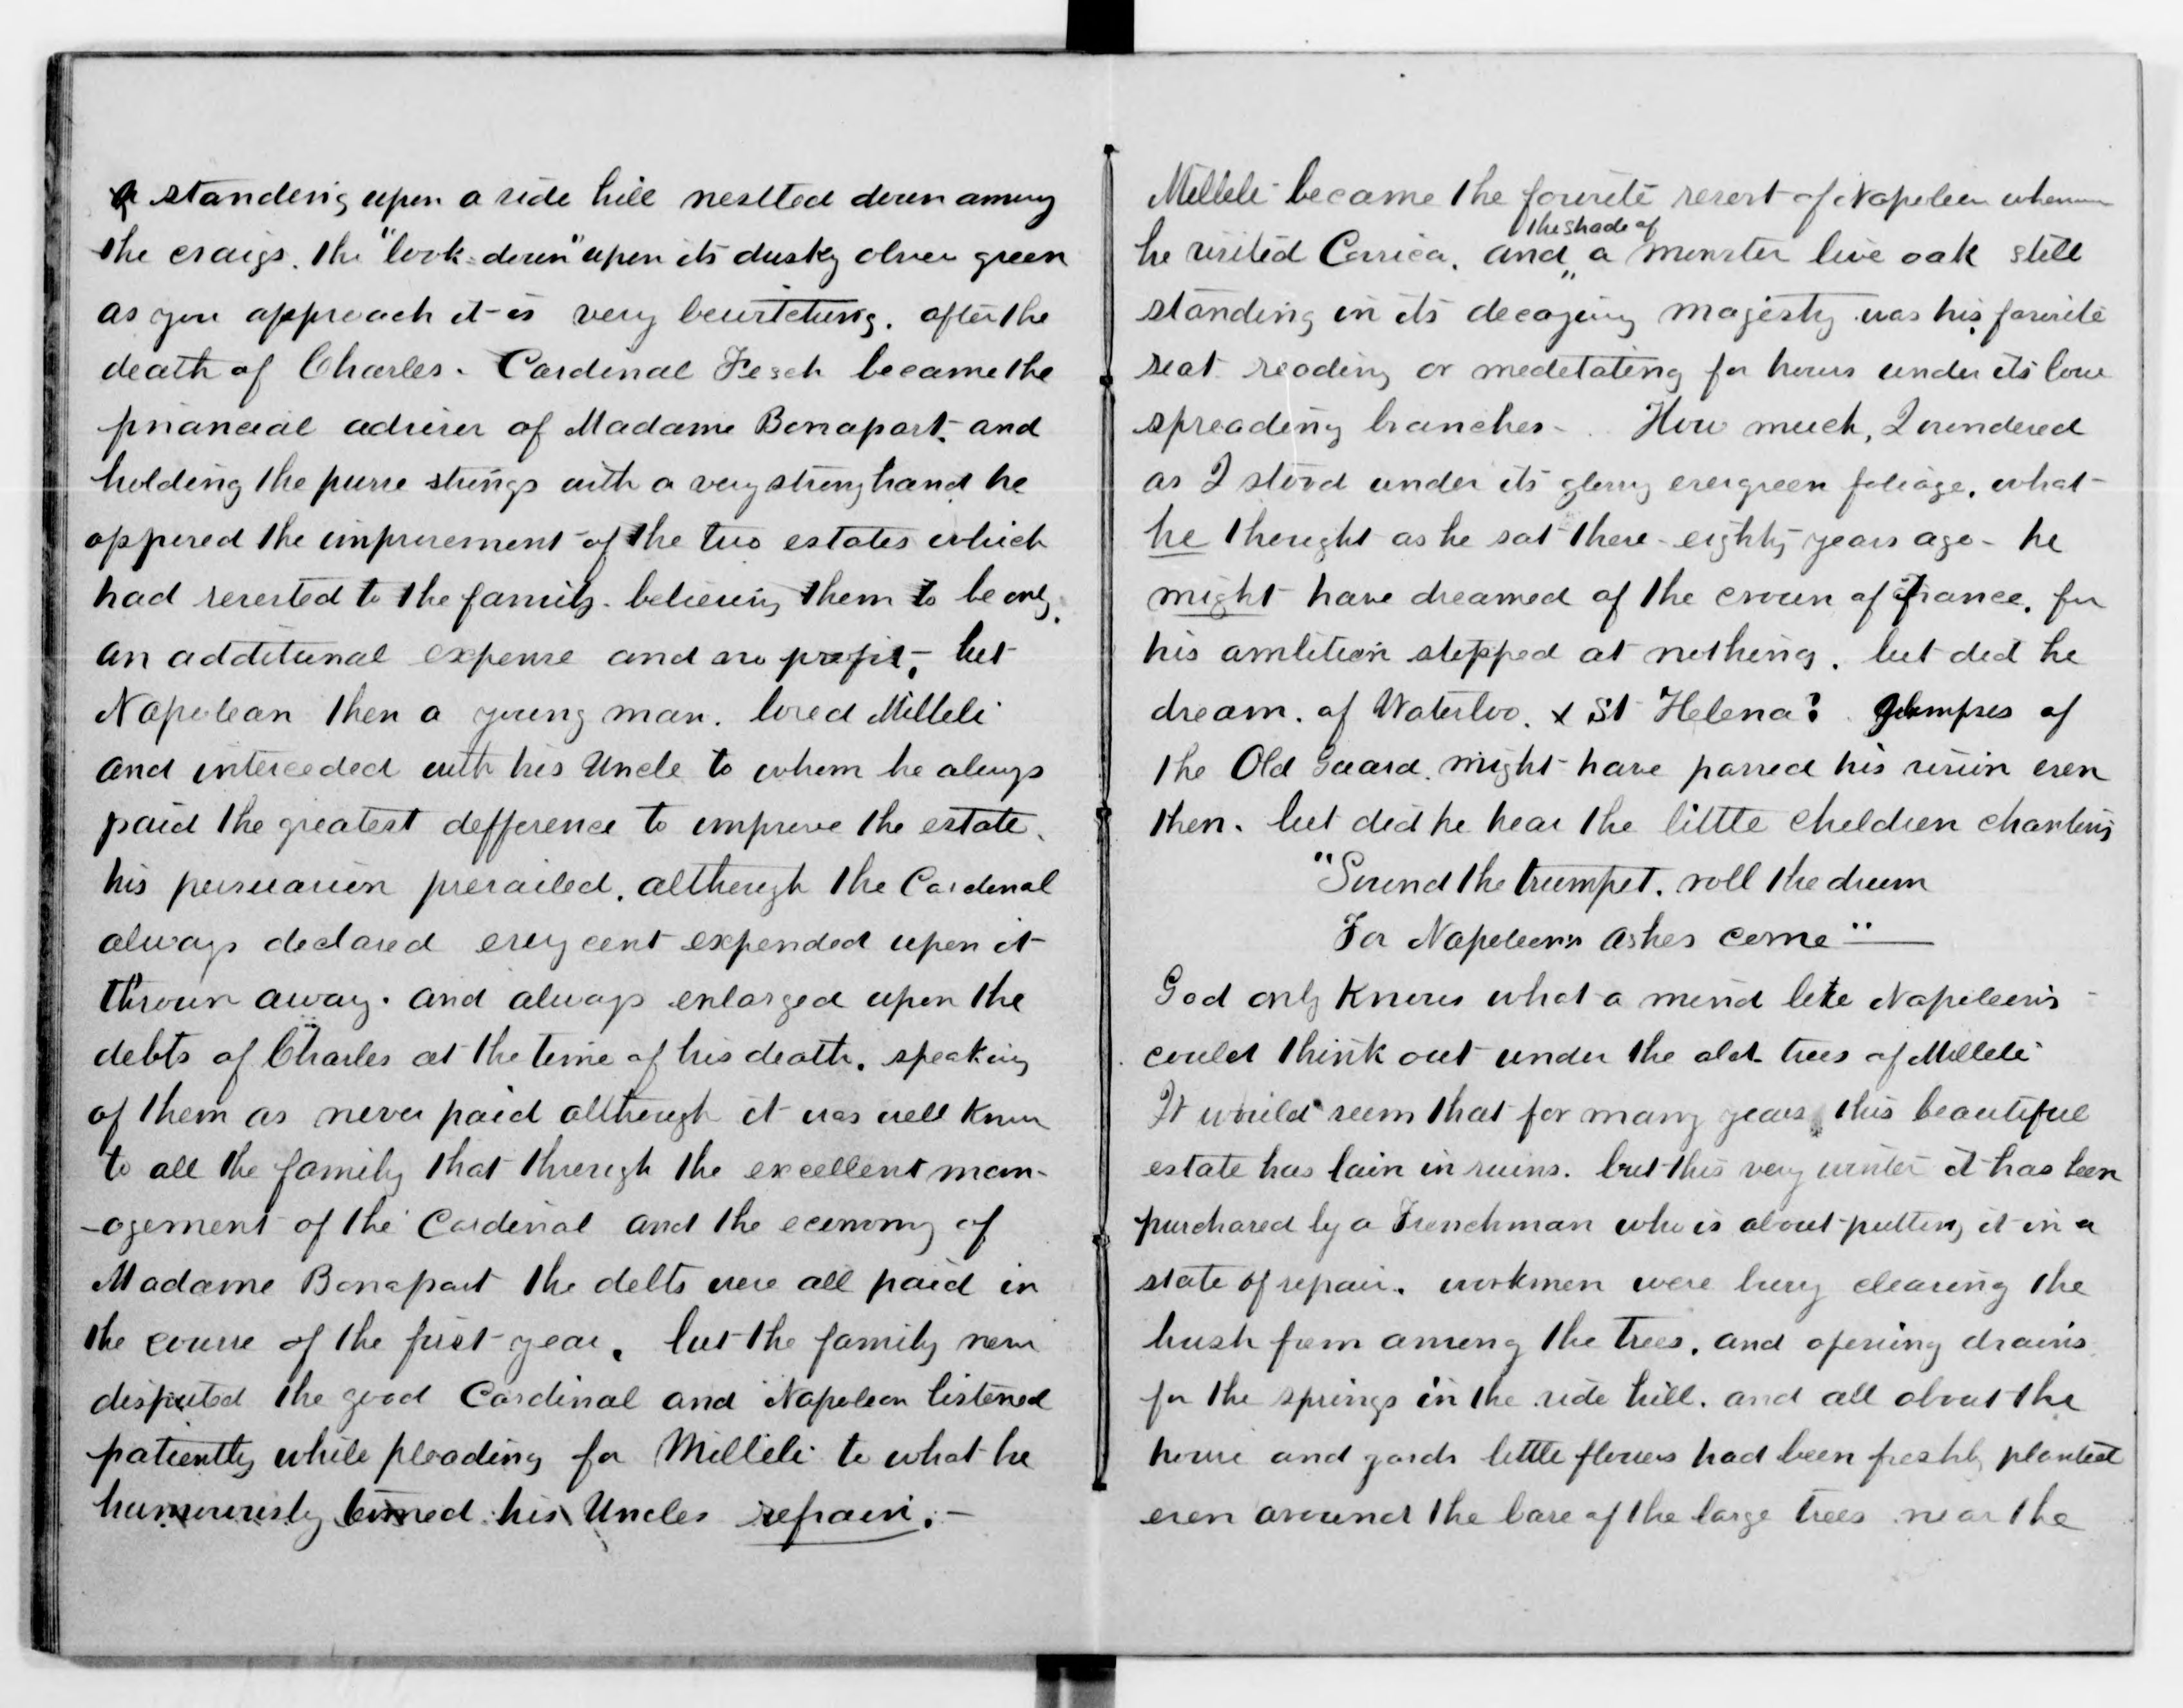 standing upon a side hill nestled down among
the craigs. the "look-down" upon its dusky olive green
as you approach it is very bewitching. after the
death of Charles. Cardinal Fesch became the
financial adviser of Madame Bonapart, and
holding the purse strings with a very strong hand he
opposed the improvement of the two estates which
had reverted to the family. believing them to be only
an additional expense and no profit, but
Napolean then a young man. loved Milleli
and interceded with his Uncle to whom he always
paid the greatest defference to improve the estate.
his persuasion prevailed. although the Cardinal
always declared every cent expended upon it
thrown away. and always enlarged upon the
debts of Charles at the time of his death. speaking
of them as never paid although it was well known
to all the family that through the excellent man-
-agement of the Cardinal and the economy of
Madame Bonapart the debts were all paid in
the course of the first year. but the family never
disputed the good Cardinal and Napoleon listened
patiently while pleading for Milleli to what he
humorously his Uncles refrain. -
Milleli became the favorite resort of Napoleon whenever
the shade of
he visited Corsica. and " a monster live oak still
standing in its decaying majesty was his favorite
seat reading or meditating for hours under its low
spreading branches - How much, I wondered
as I stood under its glossy evergreen foliage. what
he thought as he sat there - eighty years ago - he
might have dreamed of the crown of France. for
his ambition stopped at nothing. but did he
dream. of Waterloo. & St Helena? Glimpses of
the Old Guard. might have passed his vision even
then. but did he hear the little children chanting
"Sound the trumpet. roll the drum
For Napoleons ashes come" —
God only knows what a mind like Napoleon's
could think out under the old trees of Milleli
It would seem that for many years this beautiful
estate has lain in ruins. but this very winter it has been
purchased by a Frenchman who is about putting it in a
state of repair. workmen were busy clearing the
brush from among the trees. and opening drains
for the springs in the side hill. and all about the
house and yards little flowers had been freshly planted
even around the base of the large trees near the